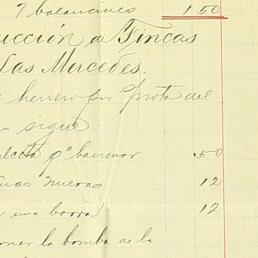 7 balancines 1 50
ucción a Fincas
Las Mercedes.
herrero por del
sigue:
pª barrenar 50
nuevas 12
una barra 12
oner la bomba de la